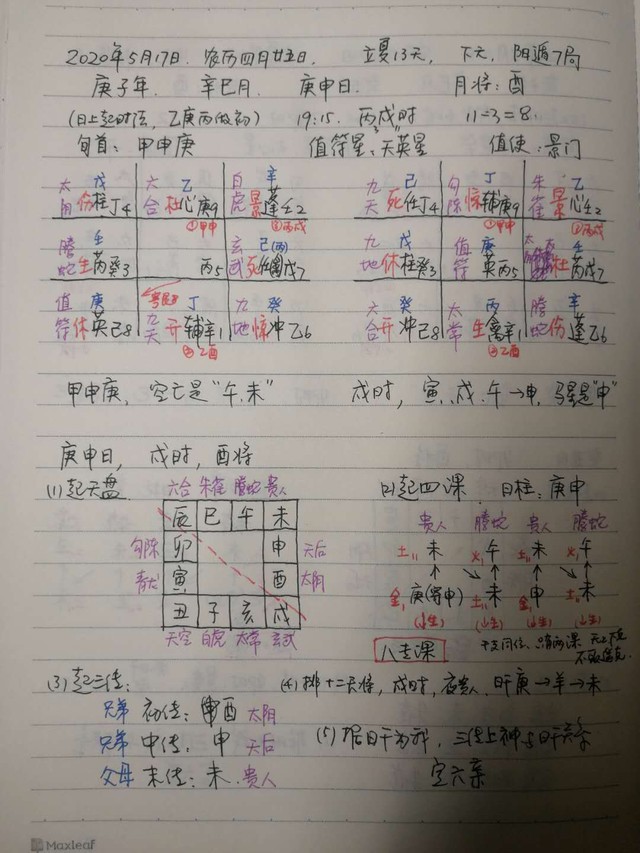 2020年5月17日. 农历四月廿五日. 立夏13天, 下元, 阳遁7局
庚子年. 辛巳月. 庚申日. 月将: 酉
(日上起时法, 乙庚丙作初) 19:15. 丙戌时 11-3=8.
旬首: 甲申庚 值符星: 天英星 值使: 景门
太 戊 六 乙 白 辛 九 己 勾 丁 朱 乙
阴 伤柱丁4 合 杜心庚9 虎 景蓬壬2 天 死任丁4 陈 惊辅庚9 雀 景心壬2
①甲申 ③丙戌 ①甲申 ③丙戌
腾 壬 玄 己(丙) 九 戊 值 庚 壬
蛇 生芮癸3 丙5 武 死任 戊7 地 休柱癸3 符 英丙5 杜芮戊7
值 庚 丁 九 癸 六 癸 太 丙 腾 辛
符 休英己8 九天 开辅辛1 地 惊冲乙6 合 开冲己8 常 生禽辛1 蛇 伤蓬乙6
②乙酉 ②乙酉
甲申庚, 空亡是“午、未” 戌时, 寅、戌、午→申, 马星是“申”
庚申日, 戌时, 酉将
(1)起天盘 (2)起四课. 日柱: 庚申
六合 朱雀 腾蛇 贵人 贵人 腾蛇 贵人 腾蛇
辰 巳 午 未 土 未 火 午 土 未 火 午
勾陈 卯 申 天后
青龙 寅 酉 太阴 金 庚(寄申) 土 未 金 申 土 未
丑 子 亥 戌 (上生) (上生) (上生) (上生)
天空 白虎 太常 玄武 八专课 干支同位、只有两课 无上下克
(3)起三传: (4)排十二天将, 戌时, 夜贵人. 旰庚→羊→未
兄弟 初传: 酉 太阴
兄弟 中传: 申 天后 (5)据日干为我, 三传上神与日干关系
父母 末传: 未. 贵人 定六亲
Maxleaf